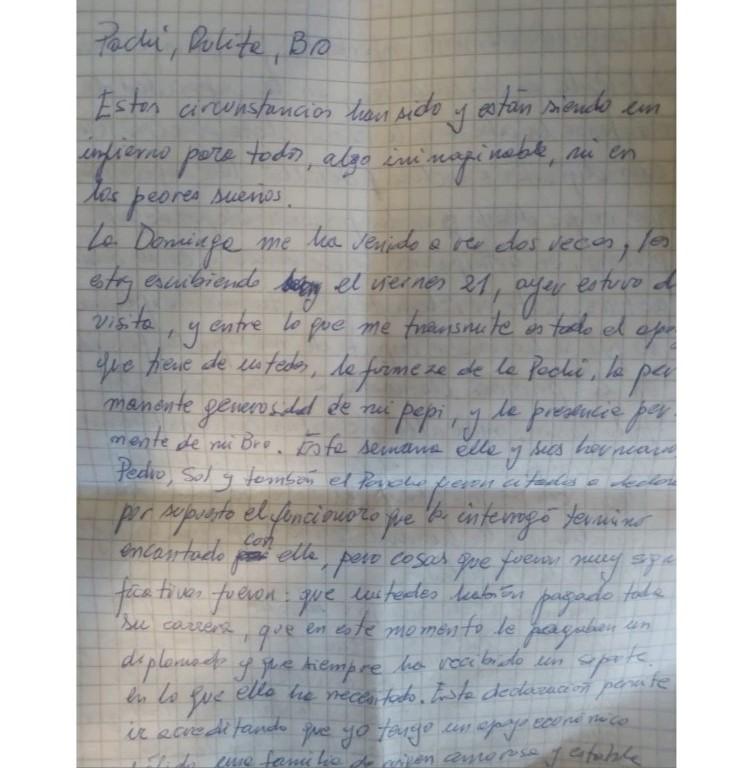 Pachi, Rulita, Bro
Estas circunstancias han sido y están siendo un
infierno para todos, algo inimaginable, ni en
los peores sueños.
La Dominga me ha venido a ver dos veces, les
estoy escribiendo hoy el viernes 21, ayer estuvo d
visita, y entre lo que me transmite es todo el apo
que tiene de ustedes, la firmeza de la Pachi, la per
manente generosidad de mi papi, y la presencia per
mente de mi Bro. Esta semana ella y sus hermano
Pedro, Sol y también el Poncho fueron citados a declar
por supuesto el funcionaro que la interrogó termino
encantado con ella, pero cosas que fueron muy sign
ficativas fueron: que ustedes habían pagado toda
su carrera, que en este momento le pagaban un
diplomado y que siempre ha recibido un soporte
en lo que ella ha necesitado. Esta declaración permite
ir acreditando que yo tengo un apoyo económico
una familia de origen amorosa y estable